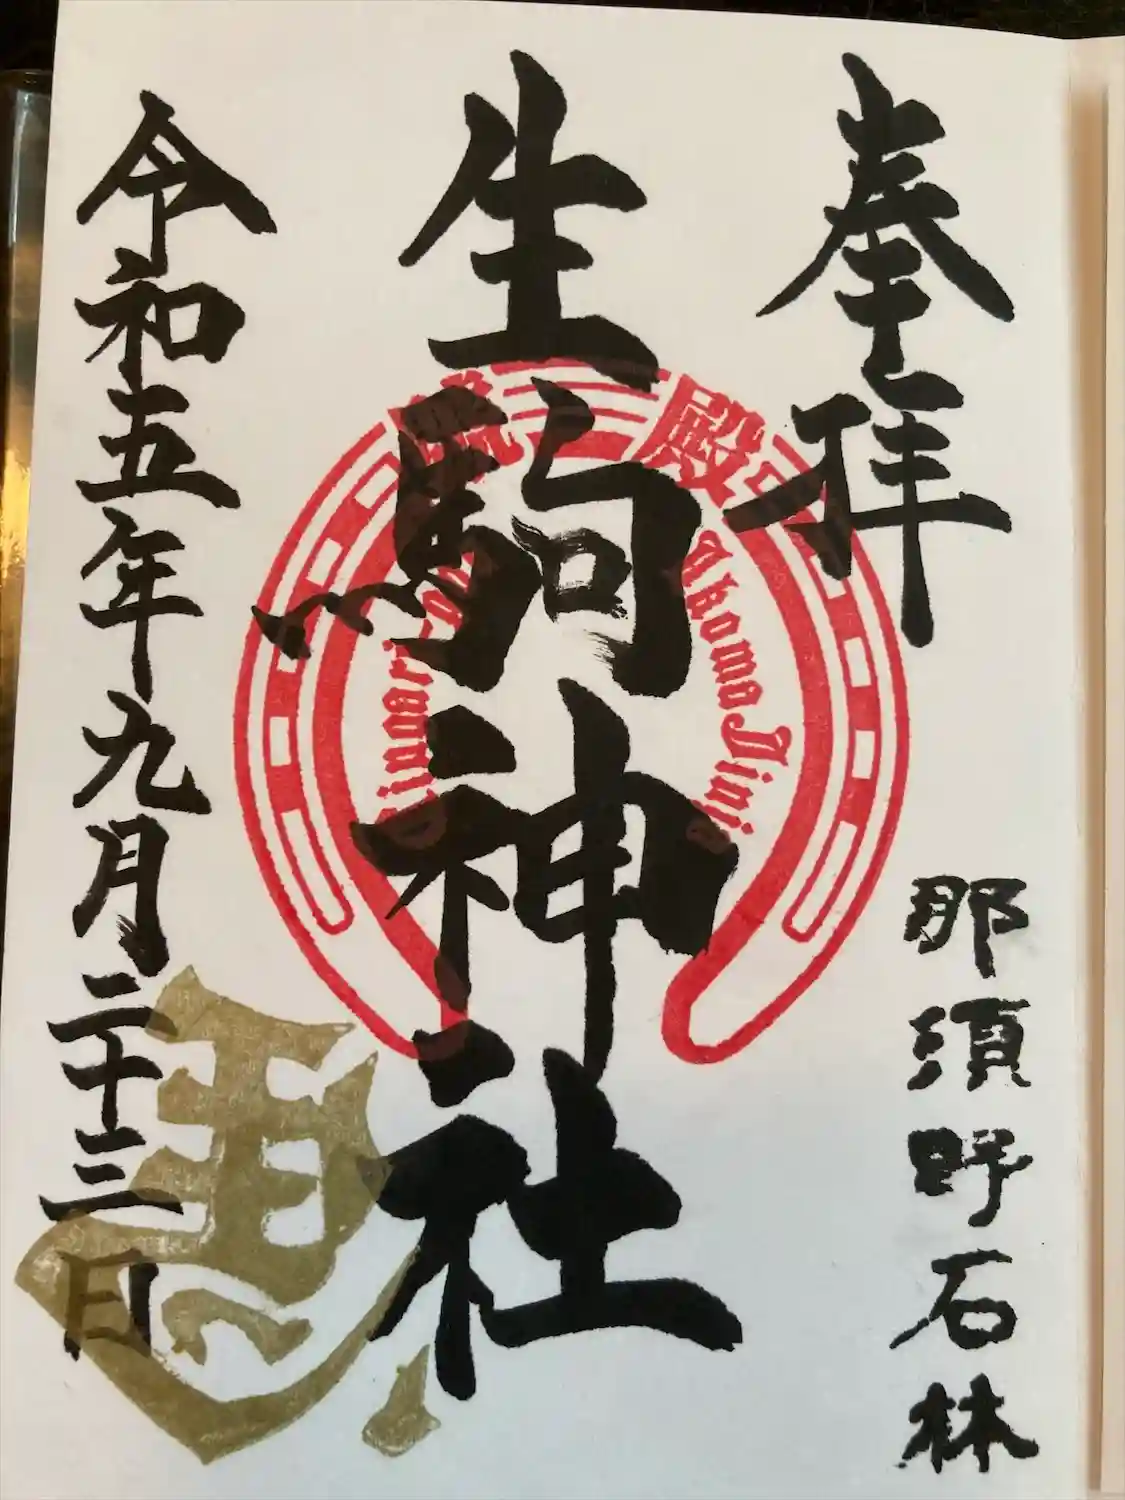 奉拝
那須野石林
生駒神社
殿
Ikoma Jinj
令和五年九月二十三日